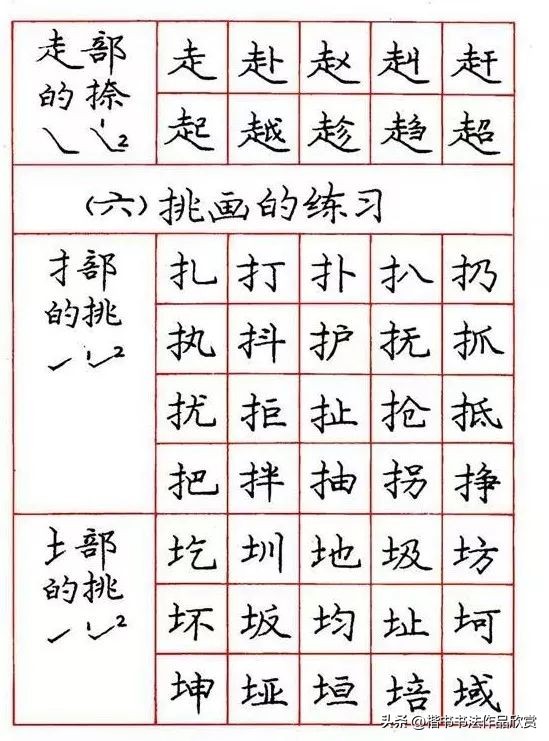 走部 走 赴 赵 赳 赶
的捺 起 越 趁 趋 超
1 2
(六)挑画的练习
扌部 扎 打 扑 扒 扔
的挑 执 抖 护 抚 抓
1 2
扰 拒 扯 抢 抵
把 拌 抽 拐 挣
土部 圪 圳 地 圾 坊
的挑 坏 坂 均 址 坷
1 2
坤 垭 垣 培 域
头条 @楷书书法作品欣赏